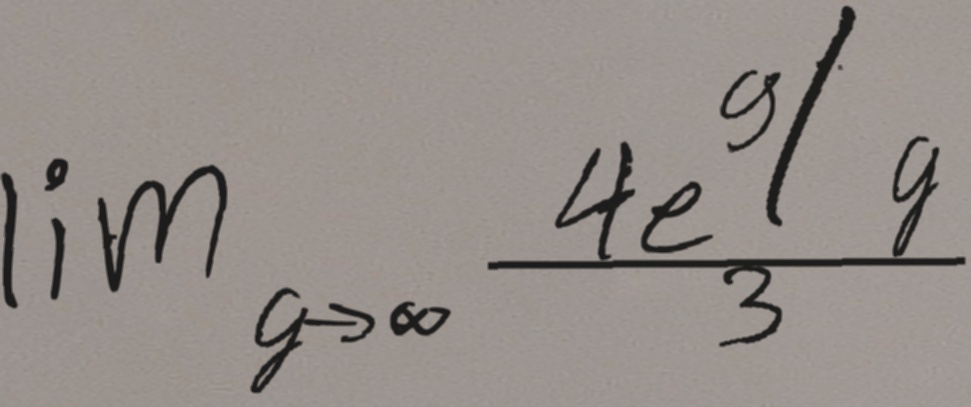 lim_{g→∞} \frac{4e^{g}/g}{3}